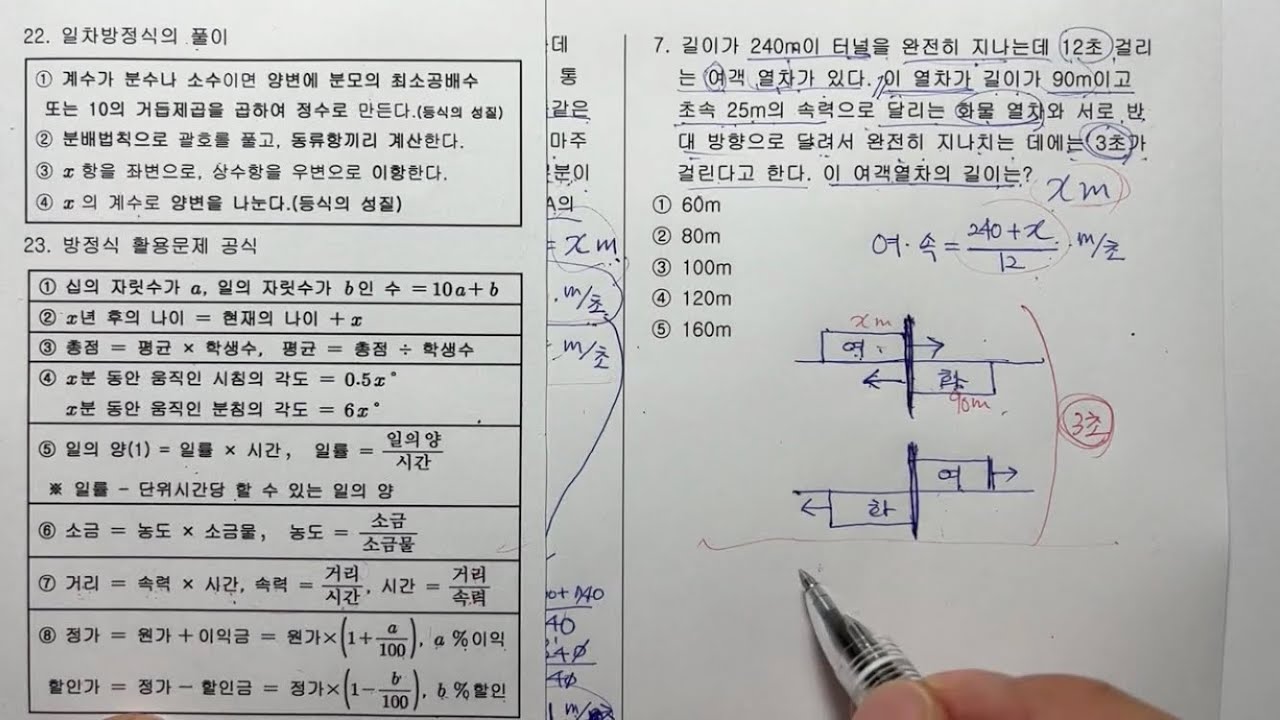 22. 일차방정식의 풀이
① 계수가 분수나 소수이면 양변에 분모의 최소공배수
또는 10의 거듭제곱을 곱하여 정수로 만든다.(등식의 성질)
② 분배법칙으로 괄호를 풀고, 동류항끼리 계산한다.
③ x 항을 좌변으로, 상수항을 우변으로 이항한다.
④ x 의 계수로 양변을 나눈다.(등식의 성질)
23. 방정식 활용문제 공식
① 십의 자릿수가 a, 일의 자릿수가 b인 수 = 10a+b
② x년 후의 나이 = 현재의 나이 + x
③ 총점 = 평균 × 학생수, 평균 = 총점 ÷ 학생수
④ x분 동안 움직인 시침의 각도 = 0.5x°
x분 동안 움직인 분침의 각도 = 6x°
⑤ 일의 양(1) = 일률 × 시간, 일률 = 일의양/시간
※ 일률 - 단위시간당 할 수 있는 일의 양
⑥ 소금 = 농도 × 소금물, 농도 = 소금/소금물
⑦ 거리 = 속력 × 시간, 속력 = 거리/시간, 시간 = 거리/속력
⑧ 정가 = 원가+이익금 = 원가×(1+a/100), a %이익
할인가 = 정가-할인금 = 정가×(1-b/100), b %할인
데
통
같은
마주
분이
A의
= x m
m/초
= m/초
40
m/초
7. 길이가 240m이 터널을 완전히 지나는데 12초 걸리
는 여객 열차가 있다. 이 열차가 길이가 90m이고
초속 25m의 속력으로 달리는 화물 열차와 서로 반
대 방향으로 달려서 완전히 지나치는 데에는 3초가
걸린다고 한다. 이 여객열차의 길이는?
x m
① 60m
② 80m
③ 100m
④ 120m
⑤ 160m
여·속 = 240+x/12 m/초
x m
여
화
90m
3초
여
화